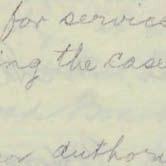 for service
ing the case
author